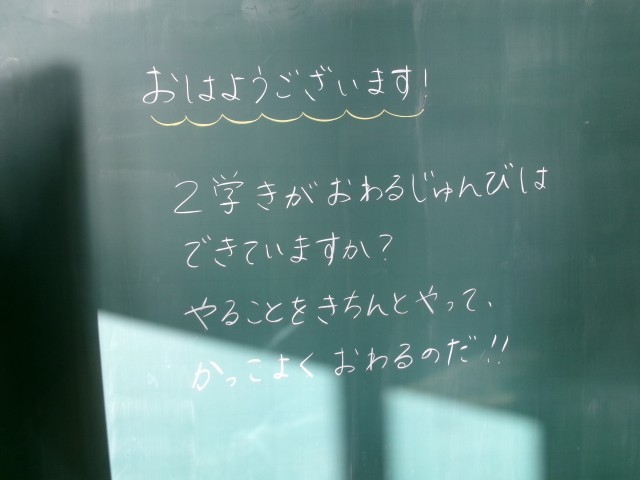 おはようございます!
2学きがおわるじゅんびは
できていますか?
やることをきちんとやって、
かっこよくおわるのだ!!